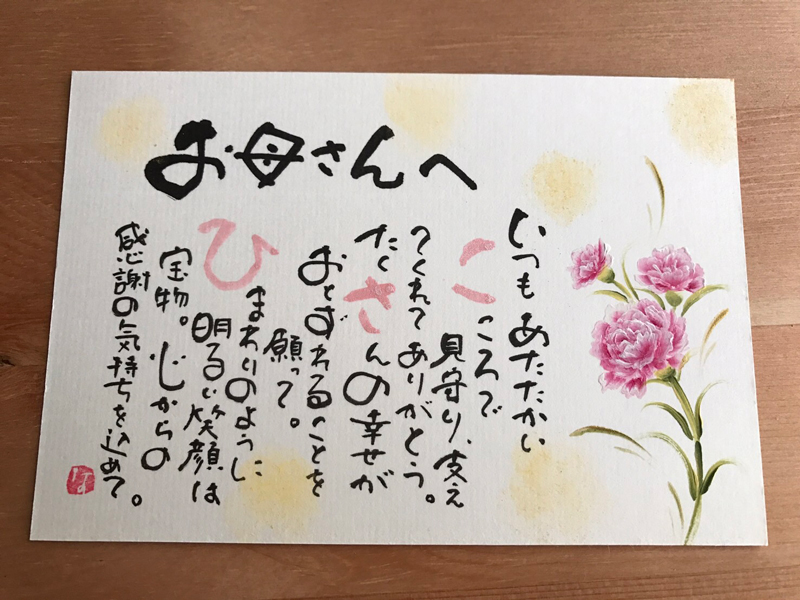 お母さんへ
いつもあたたかい
こころで
見守り、支え
てくれてありがとう。
たくさんの幸せが
おとずれることを
願って。
ひまわりのように
明るい笑顔は
宝物。心からの
感謝の気持ちを込めて。